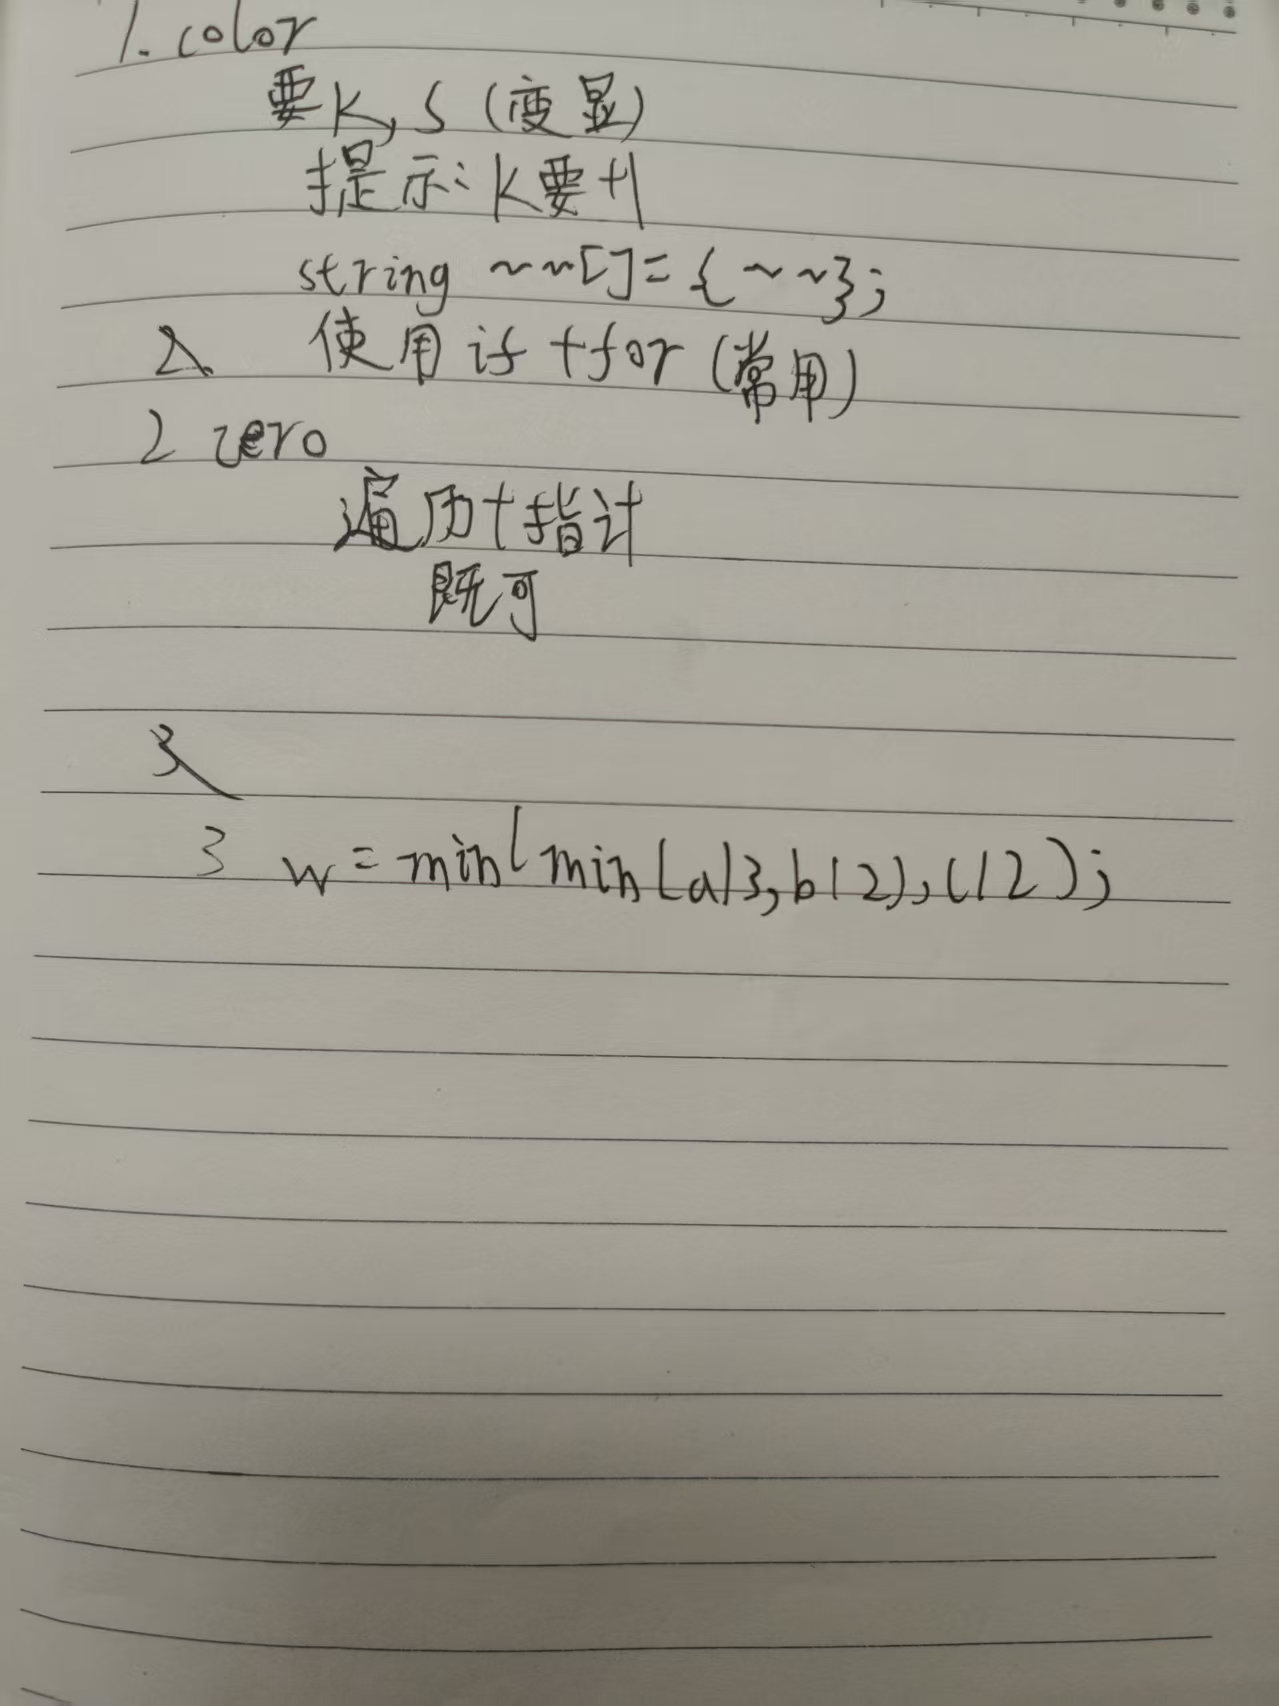 1. color
要K,S(变显)
提示:K要+1
string ~~[]={~~};
使用if+for(常用)
2 zero
遍历+指计
既可
3
3 w=min(min(a/3,b/2),c/2);